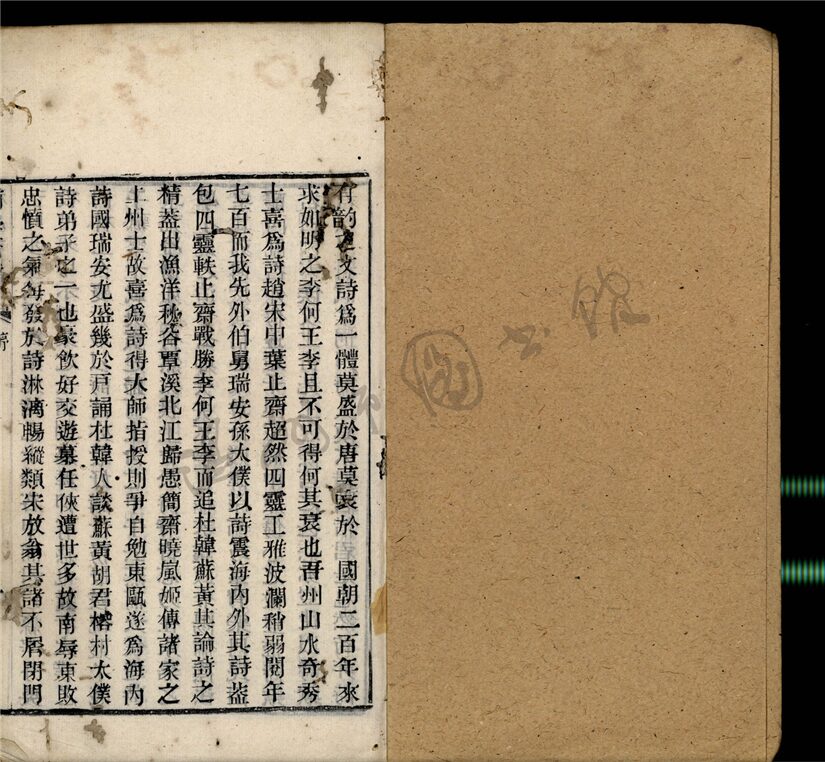 有韵之文詩爲一體莫盛於唐莫衰於 國朝二百年來
求如明之李何王李且不可得何其衰也吾州山水奇秀
士喜爲詩趙宋中葉止齋超然四靈工雅波瀾稍弱閱年
七百而我先外伯舅瑞安孫太僕以詩震海內外其詩蓋
包四靈軼止齋戰勝李何王李而追杜韓蘇黃其論詩之
精蓋出漁洋秋谷覃溪北江歸愚簡齋曉嵐姬傳諸家之
上州士故喜爲詩得大師指授則爭自勉東甌遂爲海內
詩國瑞安尤盛幾於戸誦杜韓人談蘇黃胡君榕村太僕
詩弟子之一也豪飲好交遊慕任俠遭世多故南辱東敗
忠憤之氣每發於詩淋漓暢縱類宋放翁其諸不屠閉門
序
圖书館